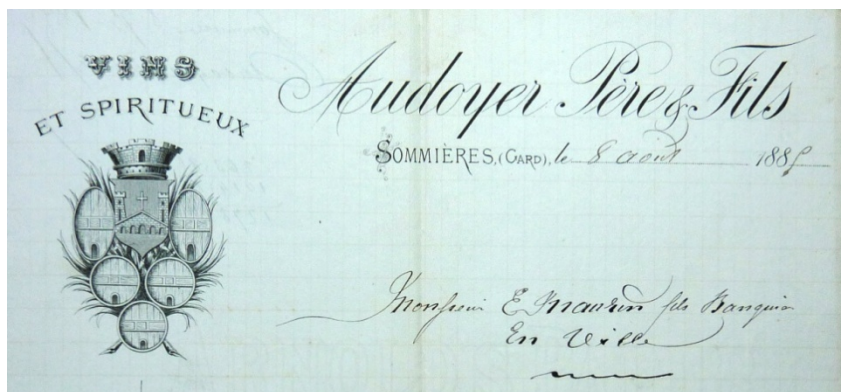 VINS
ET SPIRITUEUX
Audoyer Père & Fils
SOMMIÈRES, (GARD), le 8 août 1885
Monsieur E Maurin fils Banquier
En Ville